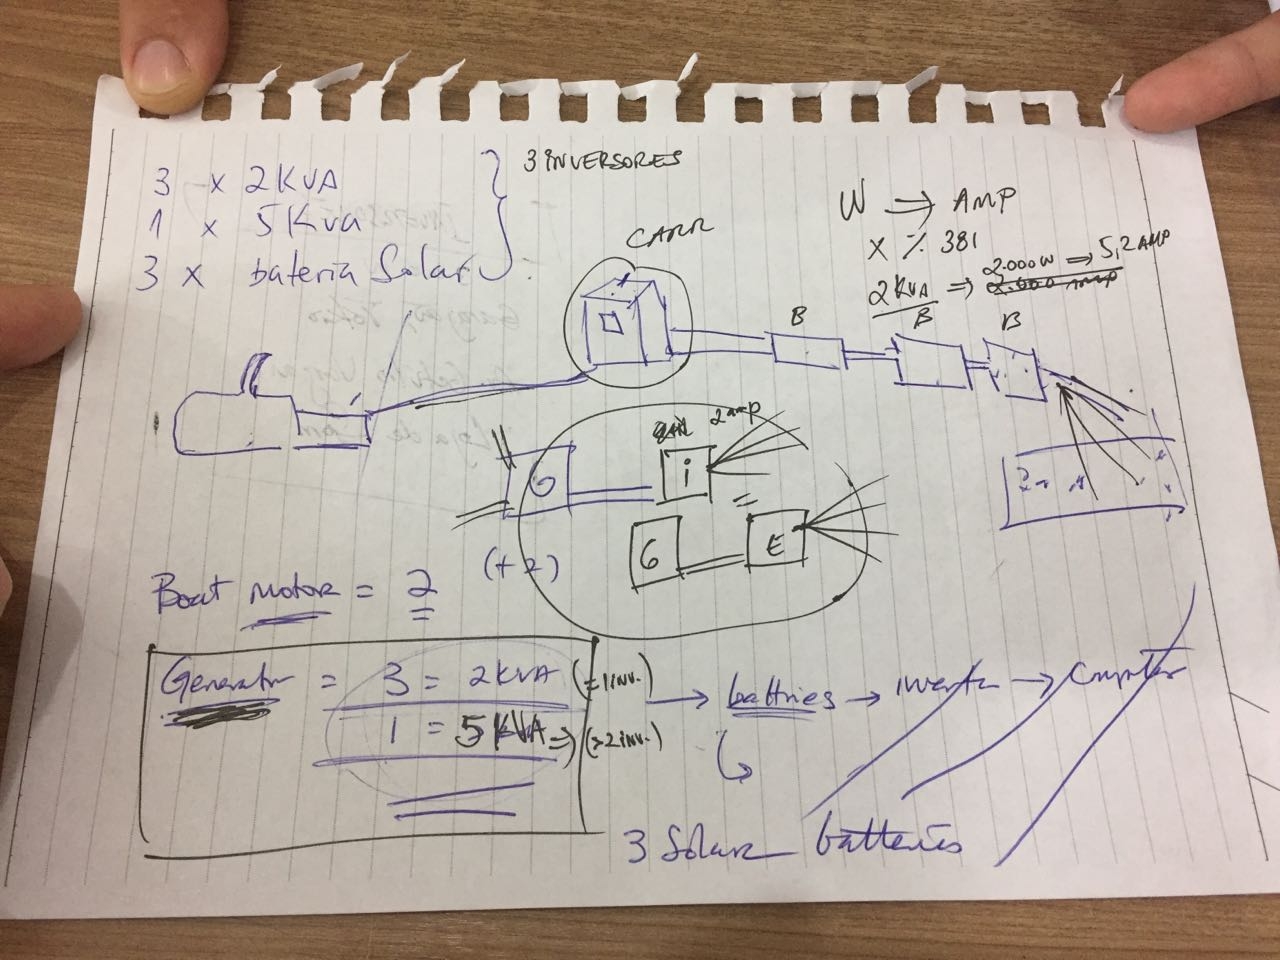 3 x 2KVA
1 x 5Kva
3 x bateria Solar
3 INVERSORES
CARR
W => AMP
x % 381
2.000W => 5,2 AMP
2KVA => 2.000 AMP
B
B
B
2 amp
G
i
G
E
(+2)
Boat motor = 2
Generator = 3 = 2KVA (=1 inv.) → battries → inverter → Computer
1 = 5 KVA => (>2 inv.)
3 Solar batteries